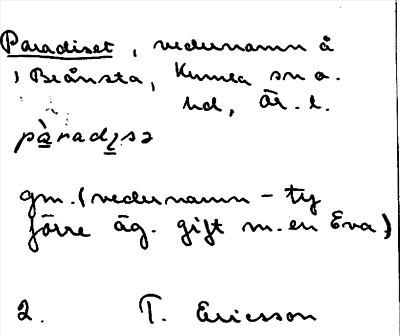 Paradiset, vedernamn å
1 Brånsta, Kumla sn o.
hd, Är. l.
pàradɩsə
gm. (vedernamn - ty
förre äg. gift m. en Eva)
2. T. Ericsson